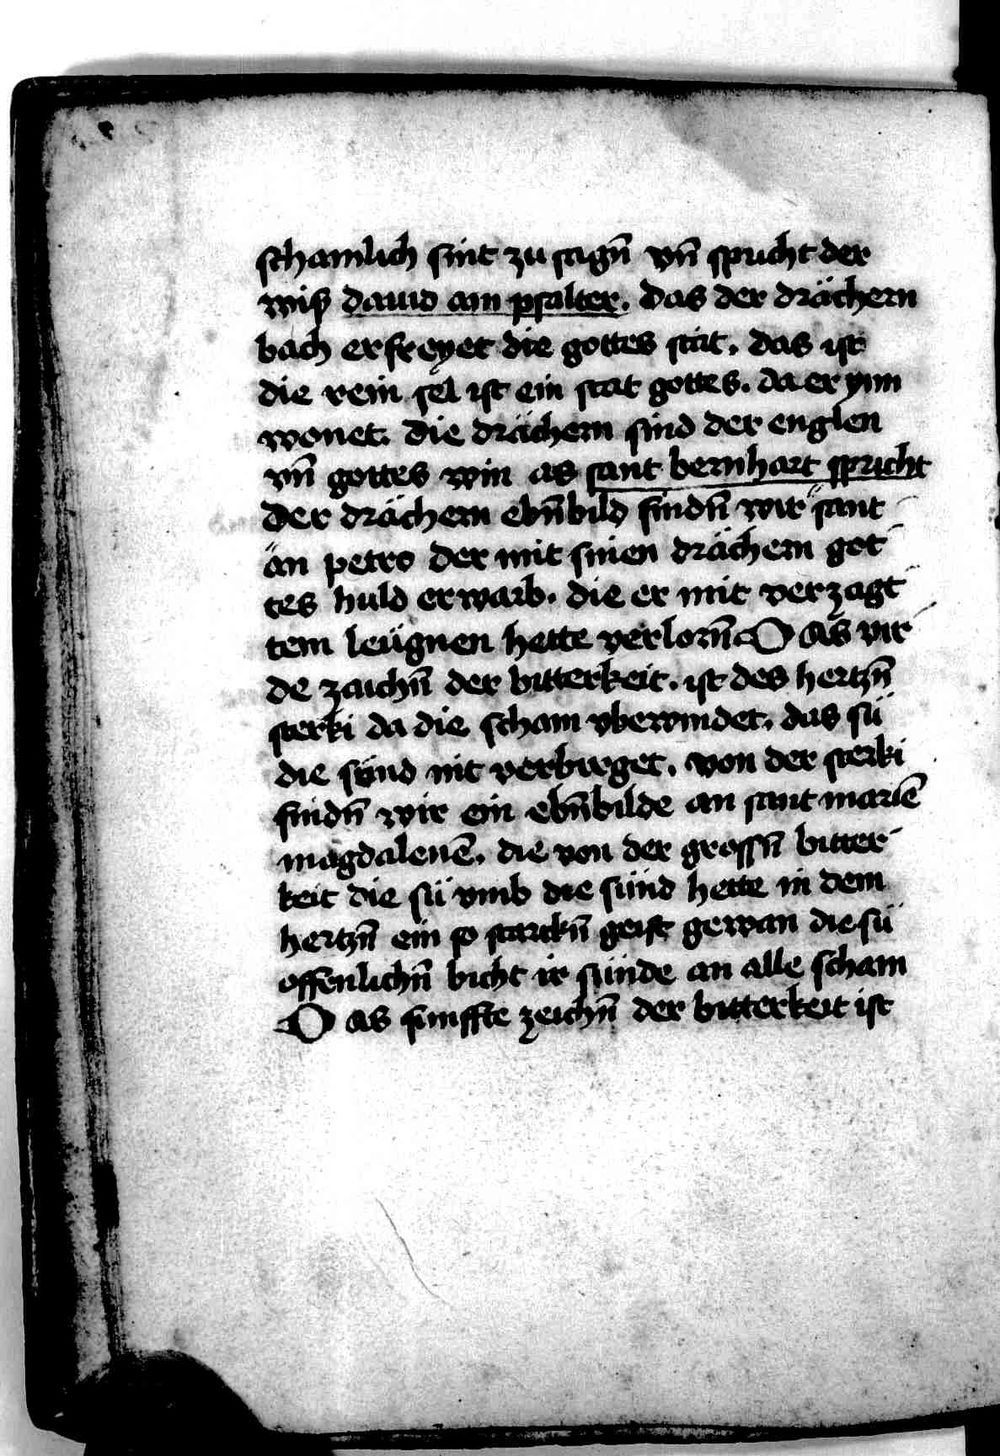 schamlich sint zu sagn̄ vn̄ spricht der
wiß dauid am psalter. das der drächern
bach erfreyet die gottes stat. das ist
die rein sel ist ein stat gottes. da er ynn
wonet. die drächern sind der englen
vn̄ gottes win as sant bernhart spricht
der drächern ebn̄bild findn̄ wir sant
än petro der mit sinen drächern got
tes huld erwarb. die er mit verzagt
tem leügnen hette verlorn̄ Das vir
de zaichn̄ der bitterkeit. ist des hertzn̄
sterki da die scham vberwindet. das sü
die sünd nit verbirget. von der sterki
findn̄ wir ein ebn̄bilde an sant mariē
magdalenē. die von der grossn̄ bitter
keit die sü vmb die sünd hette in dem
hertzn̄ ein so starckn̄ geist gewan die sü
offenlichn̄ bicht ir sünde an alle scham
Das fünffte zeichn̄ der bitterkeit ist